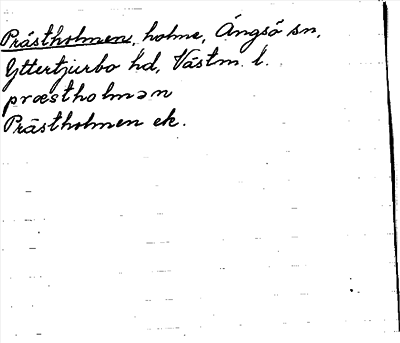 Prästholmen, holme, Ängsö sn,
Yttertjurbo hd, Västm. l.
præstholmən
Prästholmen ek.